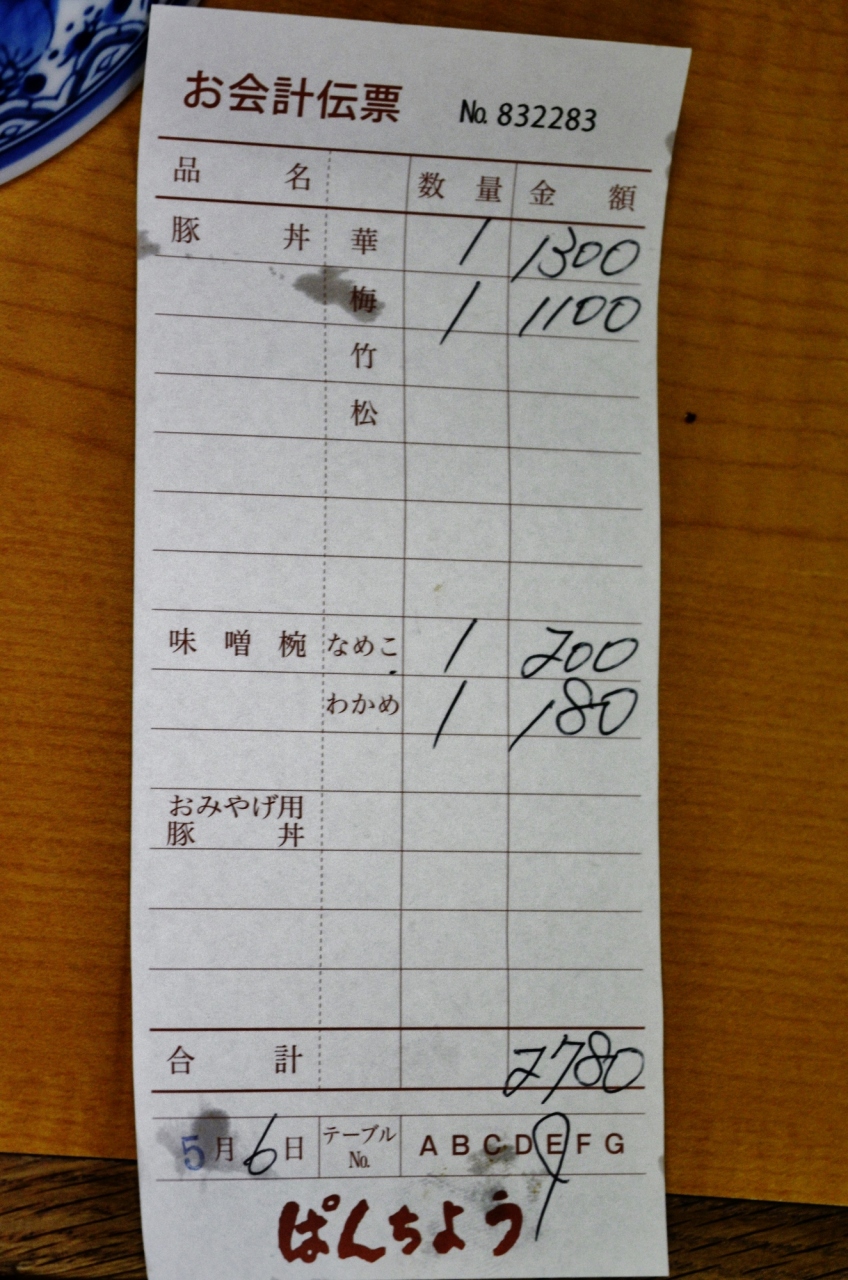 お会計伝票 № 832283
品名 数量 金額
豚丼 華 1 1300
梅 1 1100
竹
松
味噌椀 なめこ 1 200
わかめ 1 180
おみやげ用
豚丼
合計 2780
5月6日 テーブルNo. A B C D E F G
ぱんちょう